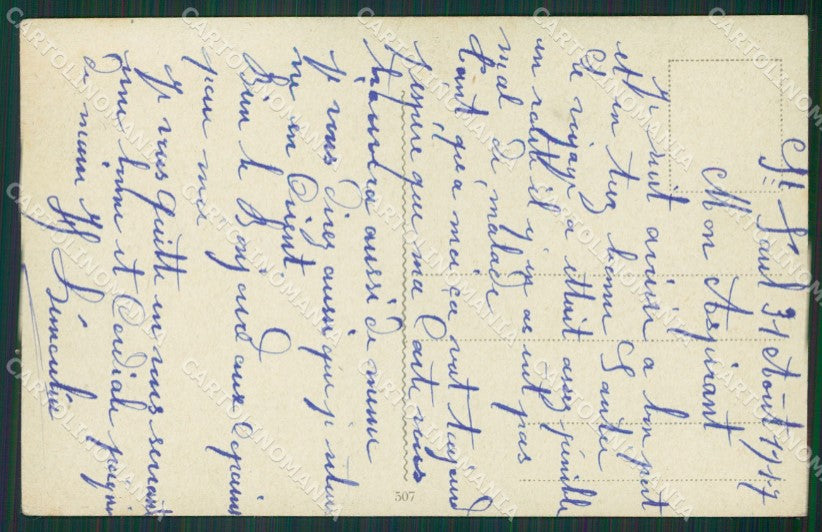 St Paul 31 Août 1917
Mon Aspirant
Je suit arrivér a bon port
et en tres bonne Santée
Le voyage a ettait asses pénible
en ralit il y as eut pas
mal de malade
Cant qu'a moi ça vat toujours
J'espere que ma Carte vous
trouvera aussi de meme
Je vous direz aussi que je retour
ne en Orient.
Bien le Bonjour aux Copains
pour moi
Je vous quitte en vous serrant
une bonne et Cordiale poignée
de main
507
CARTOLINOMANIA